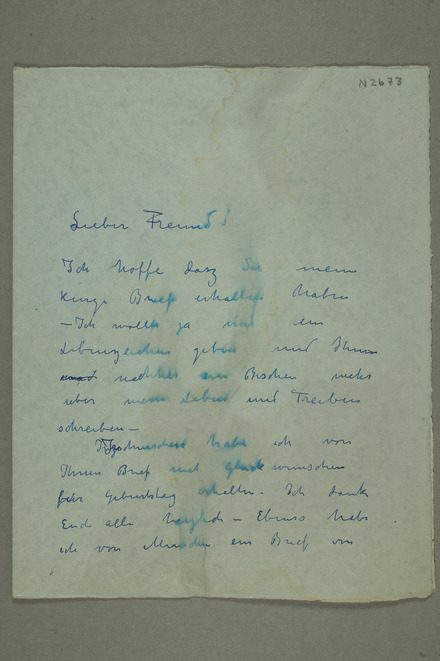 N2673
Lieber Freund!
Ich hoffe dasz Sie meinen
kurzen Brief erhalten haben
– Ich wollte ja nur ein
Lebenszeichen geben und Ihnen
nachher ein Bischen mehr
über mein Leben und Treiben
schreiben –
Inzwischen habe ich von
Ihnen Brief mit Glückwünschen
für Geburtstag erhalten. Ich danke
Euch allen herzlich – Ebenso habe
ich von München ein Brief von